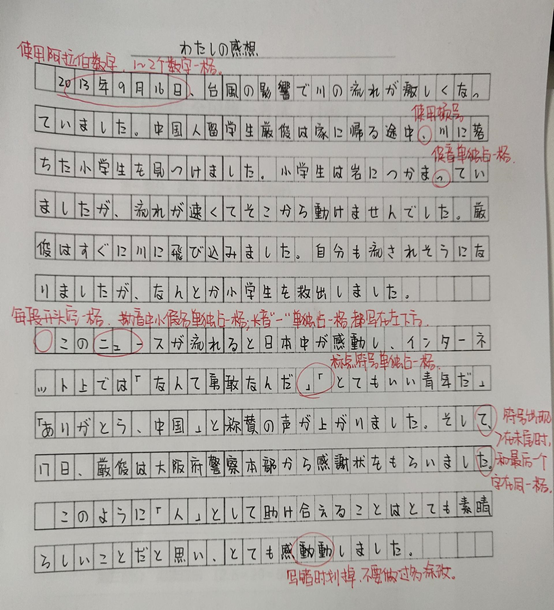 わたしの感想
使用阿拉伯数字，1~2个数字一格。
2013年9月16日、台風の影響で川の流れが激しくなっ
使用顿号
ていました。中国人留学生厳俊は家に帰る途中、川に落
促音单独占一格.
ちた小学生を見つけました。小学生は岩につかまってい
ましたが、流れが速くてそこから動けませんでした。厳
俊はすぐに川に飛び込みました。自分も流されそうにな
りましたが、なんとか小学生を救出しました。
每段开头空一格. 拗音中小假名单独占一格,长音"ー"单独占一格,都写在左下方
このニュースが流れると日本中が感動し、インターネ
标点符号单独占一格.
ット上では「なんて勇敢なんだ」「とてもいい青年だ」
「ありがとう、中国」と称賛の声が上がりました。そして、
符号出现
在末尾时,
和最后一个
字在同一格.
17日、厳俊は大阪府警察本部から感謝状をもらいました。
このように「人」として助け合えることはとても素晴
らしいことだと思い、とても感動動しました。
写错时划掉,不要做过多涂改。